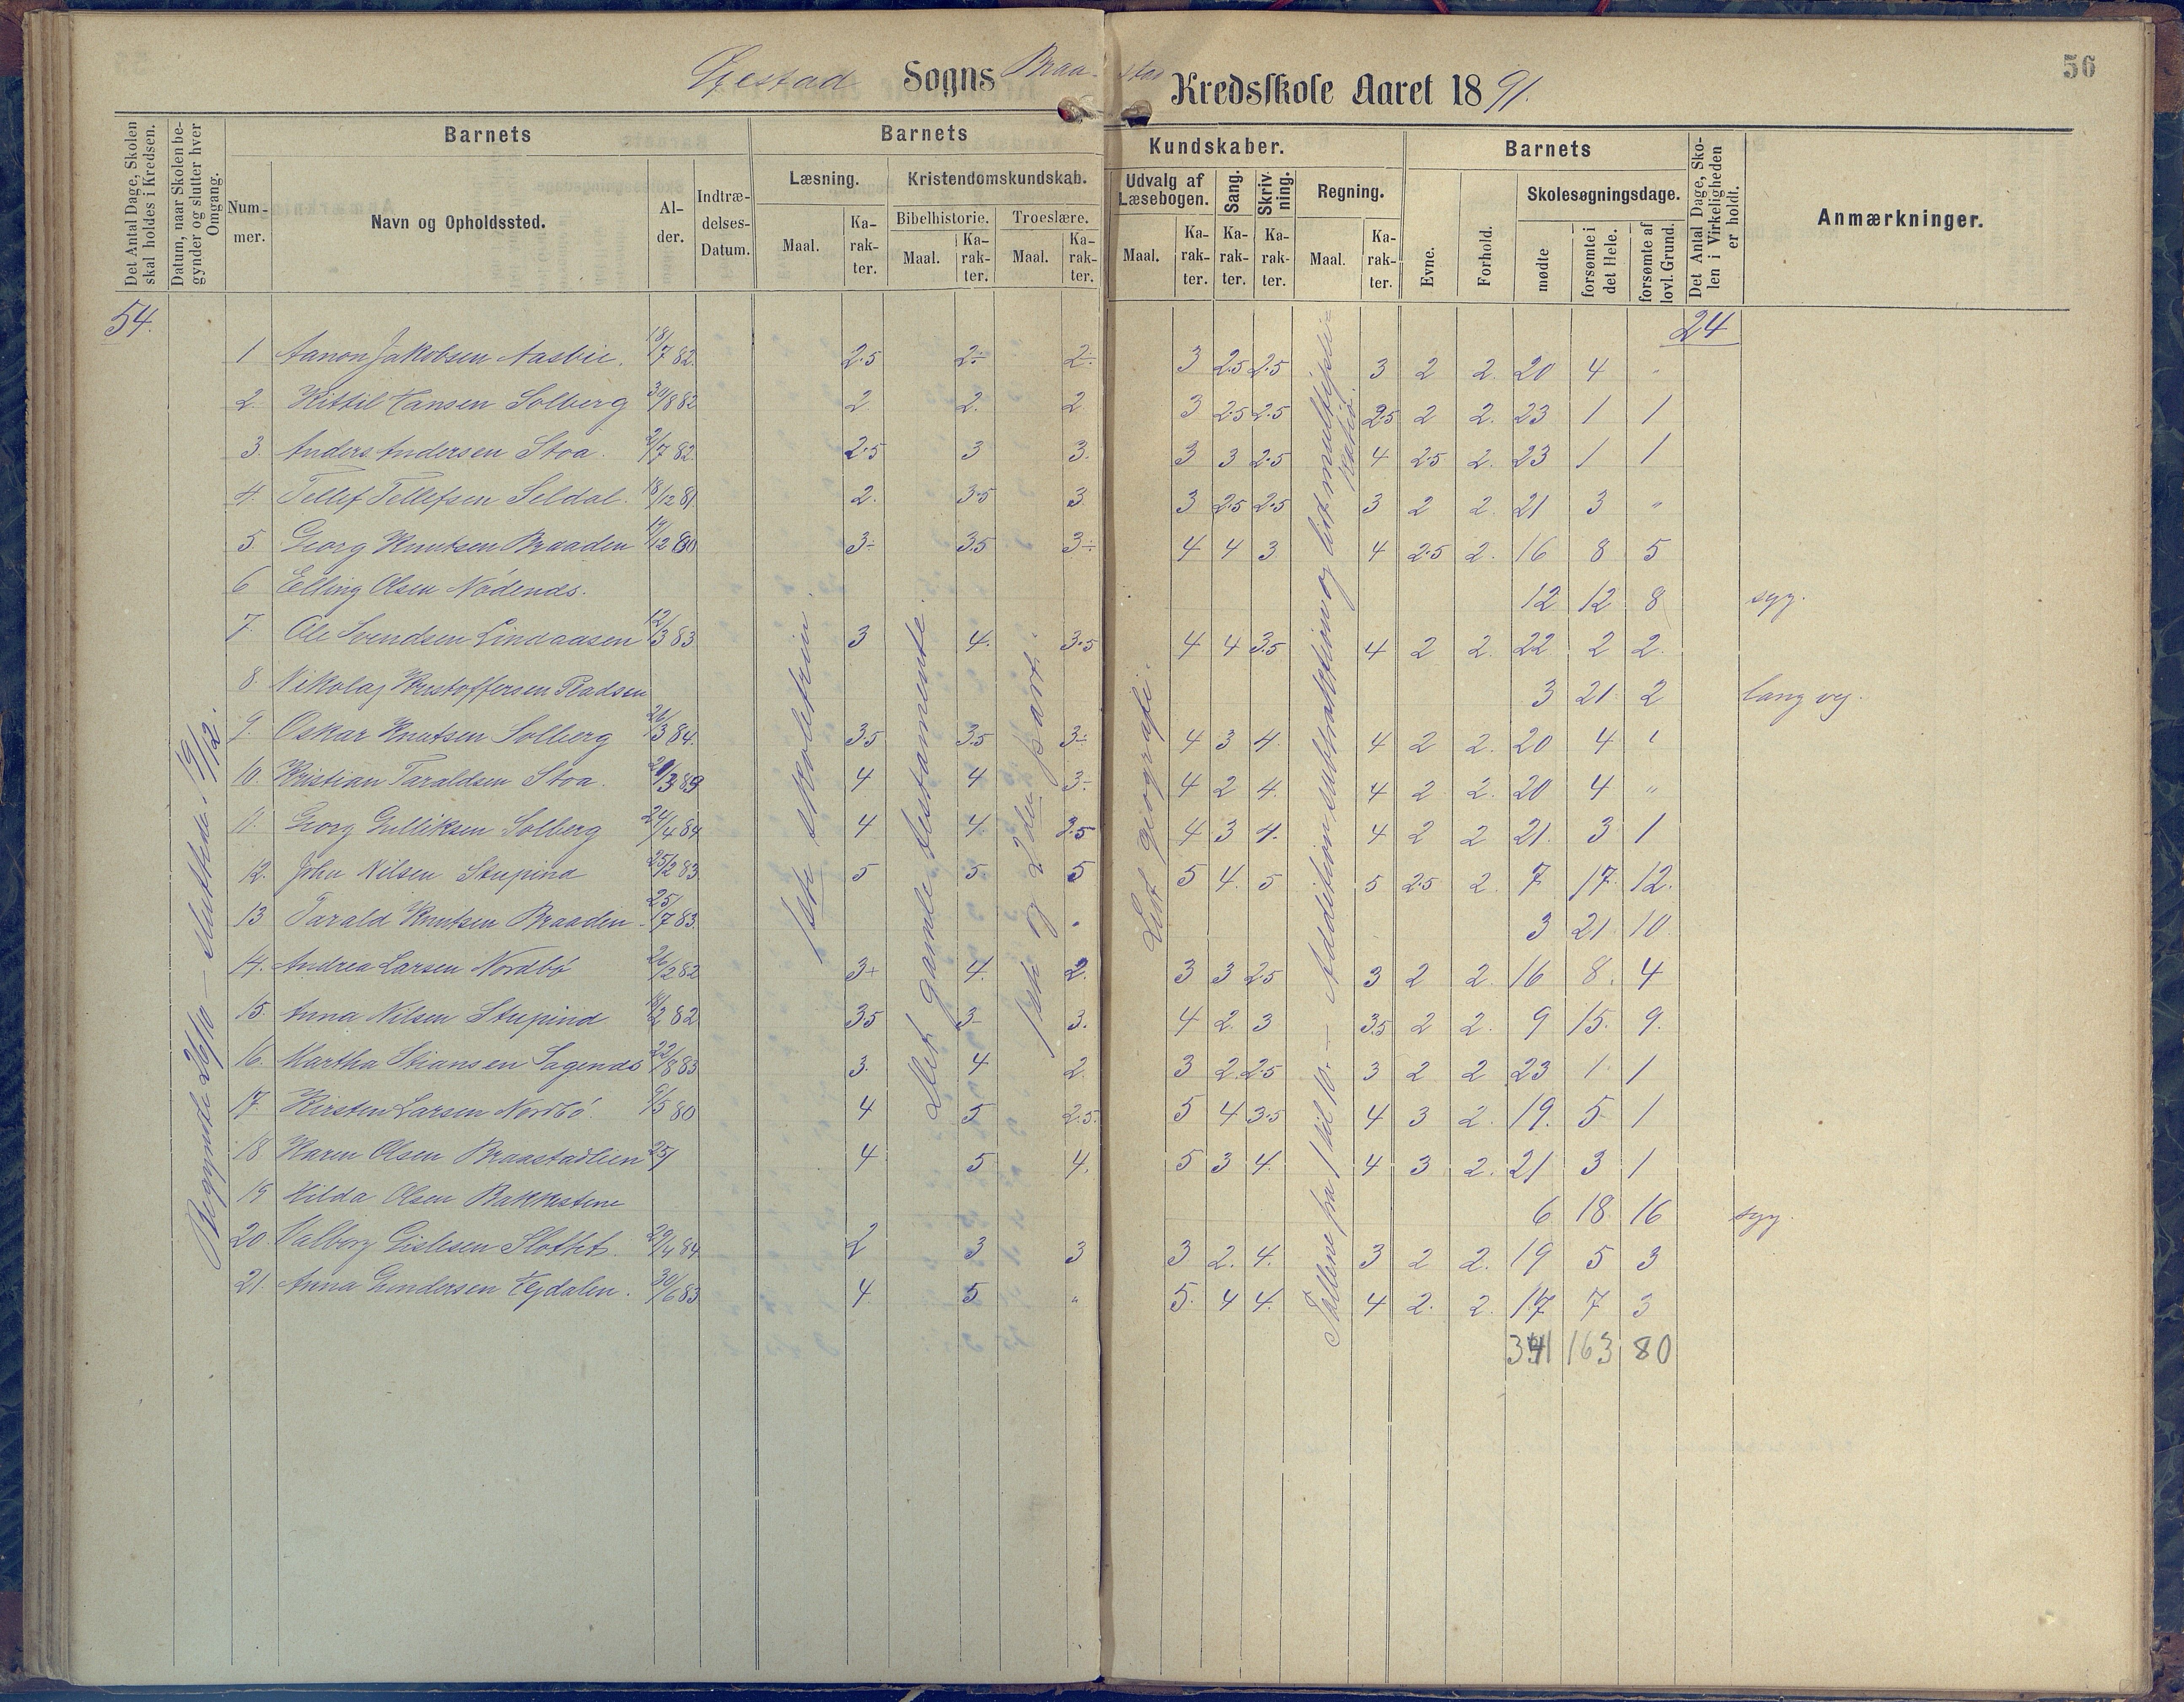 56
Øiestad Sogns Braa- stad Kredsskole Aaret 1891.
Det Antal Dage, Skolen skal holdes i Kredsen.
Datum, naar Skolen begynder og slutter hver Omgang.
Barnets
Nummer.
Navn og Opholdssted.
Alder.
Indtrædelses-Datum.
Barnets Kundskaber.
Læsning.
Maal.
Karakter.
Kristendomskundskab.
Bibelhistorie.
Maal.
Karakter.
Troeslære.
Maal.
Karakter.
Udvalg af Læsebogen.
Maal.
Karakter.
Sang.
Karakter.
Skrivning.
Karakter.
Regning.
Maal.
Karakter.
Barnets
Evne.
Forhold.
Skolesøgningsdage.
mødte
forsømte i det Hele.
forsømte af lovl. Grund.
Det Antal Dage, Skolen i Virkeligheden er holdt.
Anmærkninger.
54.
24
Begyndte 26/10 – sluttede 19/12.
1ste skoletrin.
Det gamle testamente.
1ste og 2den part.
Lidt geografi.
Tallene fra 1 til 10. – Addition subtraktion og lidt multiplikation.
1 Aanon Jakobsen Aasbie. 18/7 82. 2.5 2÷ 2÷ 3 2.5 2.5 3 2 2. 20 4 "
2. Kittil Hansen Solberg 30/8 82 2 2. 2 3 2.5 2.5 2.5 2 2. 23 1 1
3. Anders Andersen Stoa. 2/7 82. 2.5 3 3. 3 3 2.5 4 2.5 2. 23 1 1
4. Tellef Tellefsen Seldal. 18/12 81. 2. 3.5 3 3 2.5 2.5 3 2 2. 21 3 "
5. Georg Knutsen Braaden 19/12 80 3÷ 3.5 3÷ 4 4 3 4 2.5 2. 16 8 5
6 Elling Olsen Nødends. 12 12 8 syg.
7. Ole Svendsen Lindaasen 12/3 83 3 4. 3.5 4 4 3.5 4 2 2. 22 2 2.
8. Nikolaj Kristoffersen Rødsen 3 21 2 lang vej.
9. Oskar Knutsen Solberg 26/3 84. 3.5 3.5 3÷ 4 3 4. 4 2 2. 20 4 "
10. Kristian Taraldsen Stoa. 4 4 3÷ 4 2 4. 4 2 2. 20 4 "
11. Georg Gulliksen Solberg 24/4 84 4 4. 3.5 4 3 4. 4 2 2 21. 3 1
12. John Nilsen Stupina 25/2 83 5 5 5 5 4. 5 5 2.5 2. 7 17. 12.
13 Tarald Knutsen Braaden 25/7 83. 3 21 10
14. Andrea Larsen Nordbø 26/2 82 3+ 4. 2. 3 3 2.5 3 2 2. 16 8. 4
15. Anna Nilsen Stupind 82 3.5 3÷ 3. 4 2. 3 3.5 2 2. 9 15. 9.
16. Martha Stiansen Sagends 22/8 83 3. 4 2. 3 2. 2.5 3 2 2 23 1. 1
17. Kirsten Larsen Nordbø. 80 4 5 2.5. 5 4 3.5 4 3 2. 19. 5 1
18 Karen Olsen Braastadlien 25/ 4 5 4. 5 3 4. 4 3 2. 21 3 1
19 Hilda Olsen Bakkestene 6 18 16 syg.
20. Valborg Gislesen Slottet. 29/4 84 2 3 3 3 2. 4. 3 2 2. 19 5 3
21. Anna Gundersen Egdalen. 30/6 83 4 5 " 5. 4 4. 4 2. 2. 17 7 3
341 163 80